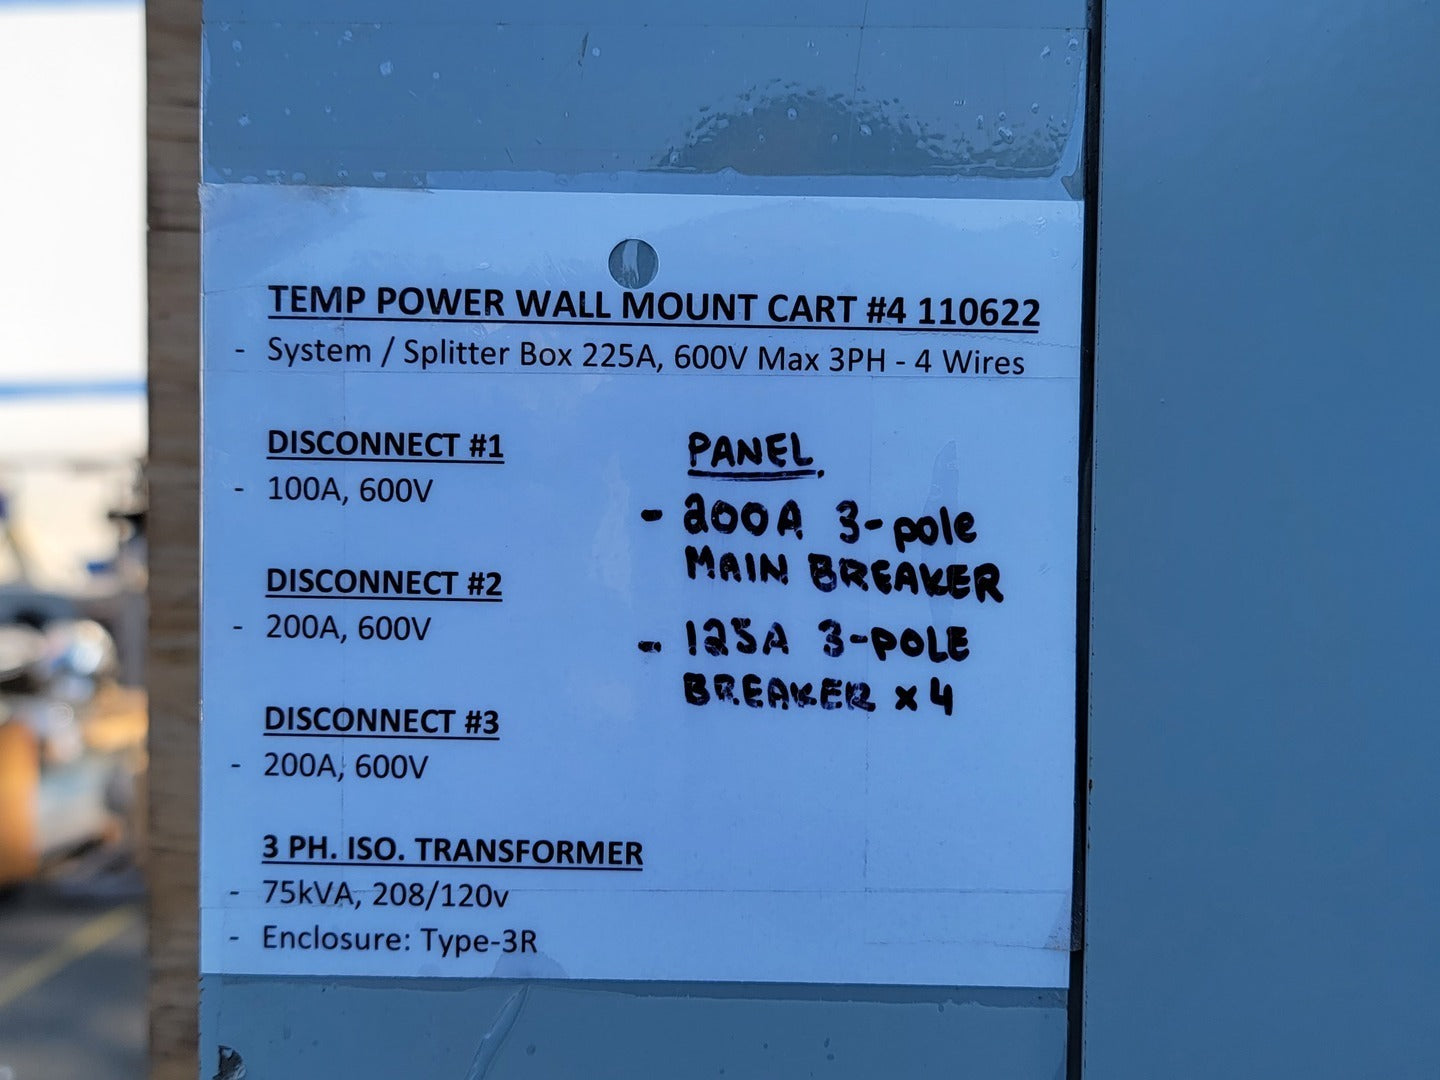 TEMP POWER WALL MOUNT CART #4 110622
- System / Splitter Box 225A, 600V Max 3PH - 4 Wires
DISCONNECT #1
- 100A, 600V
DISCONNECT #2
- 200A, 600V
DISCONNECT #3
- 200A, 600V
3 PH. ISO. TRANSFORMER
- 75kVA, 208/120v
- Enclosure: Type-3R
PANEL
- 200A 3-pole
MAIN BREAKER
- 125A 3-POLE
BREAKER x 4